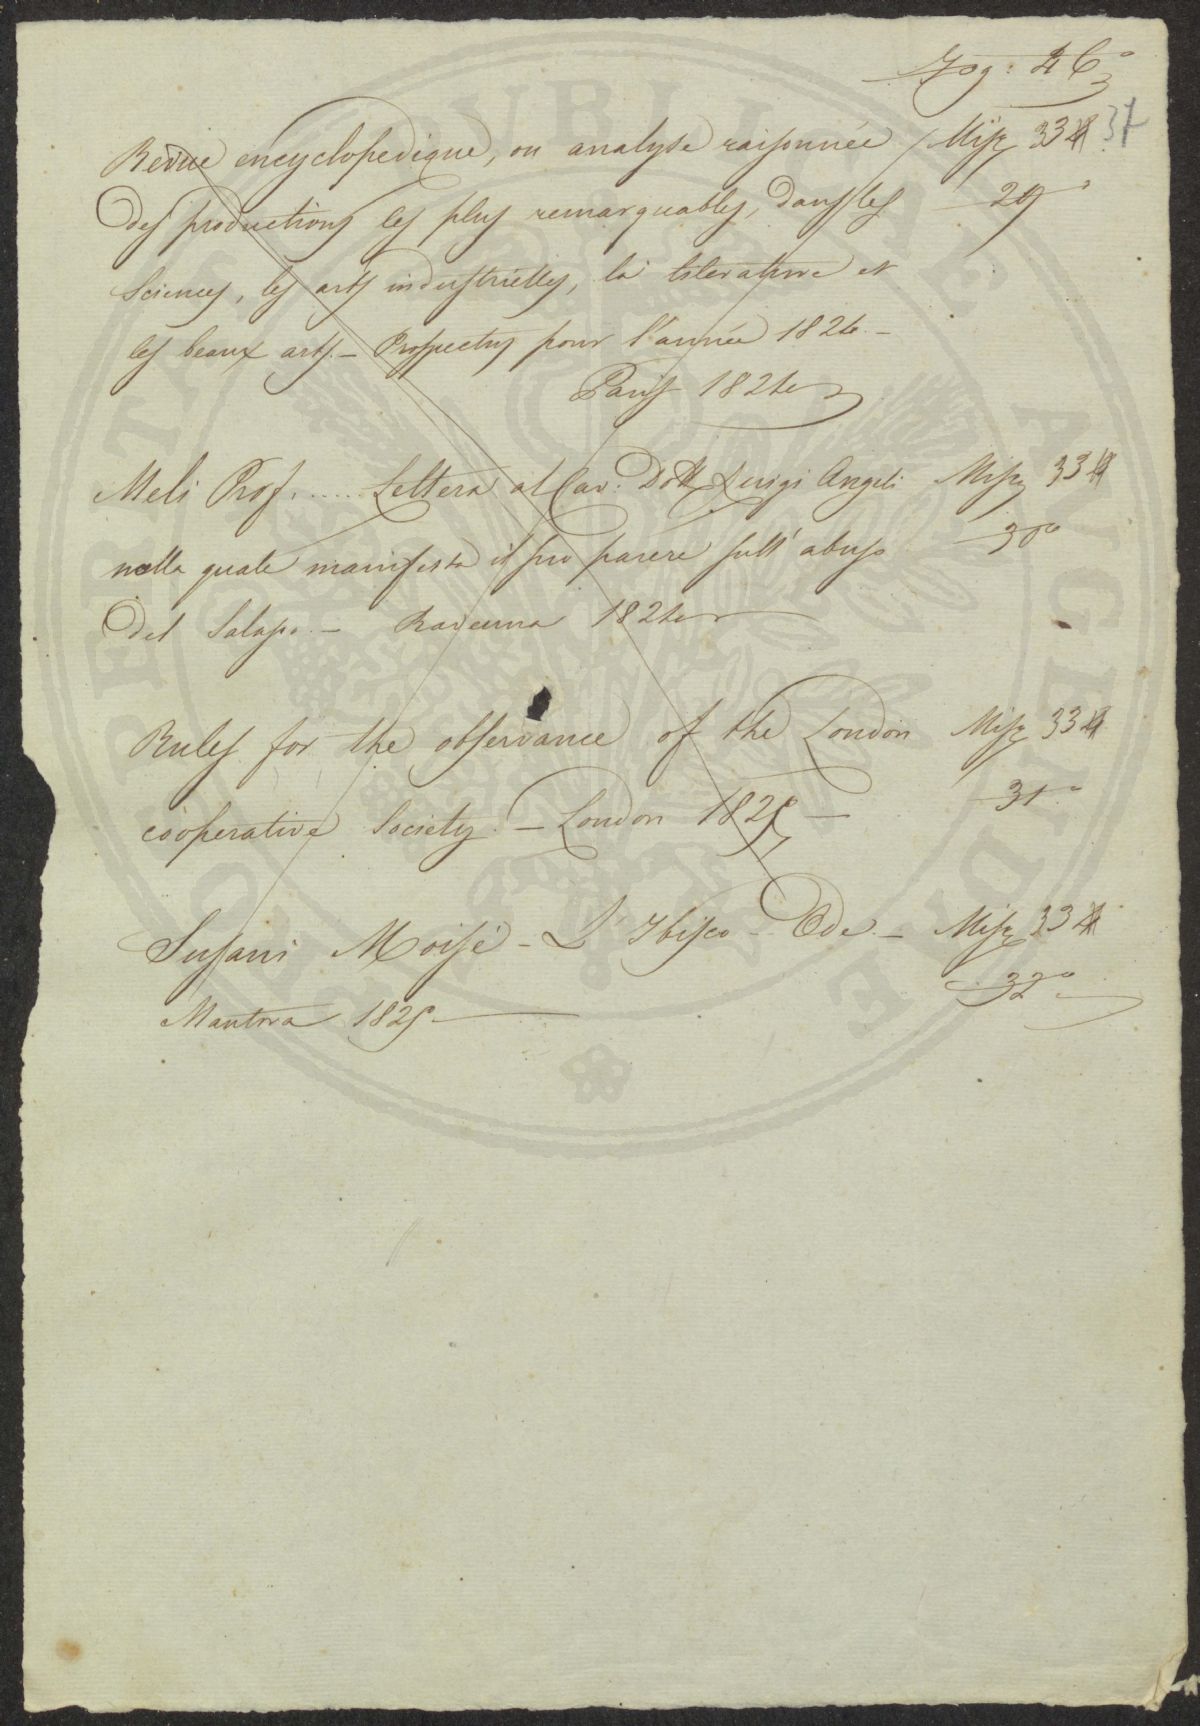 Fog: 46°
37
Revue encyclopedique, ou analyse raisonnée Misz 33
des productions les plus remarquables, dans les 29°
Sciences, les arts industrielles, la literature et
les beaux arts. – Prospectus pour l'année 1826. –
Paris 1826
Meli Prof. ..... Lettera al Cav: Dott Luigi Angeli Misz 33
nella quale manifesta il suo parere sull' abuso 30°
del Salasso. – Ravenna 1826
Rules for the observance of the London Misz 33
cooperative Society. – London 1825 – 31°
Susani Moisé – L'Ibisco – Ode. – Misz 33
Mantova 1825 32°
PUBLICAE AUGENDAE